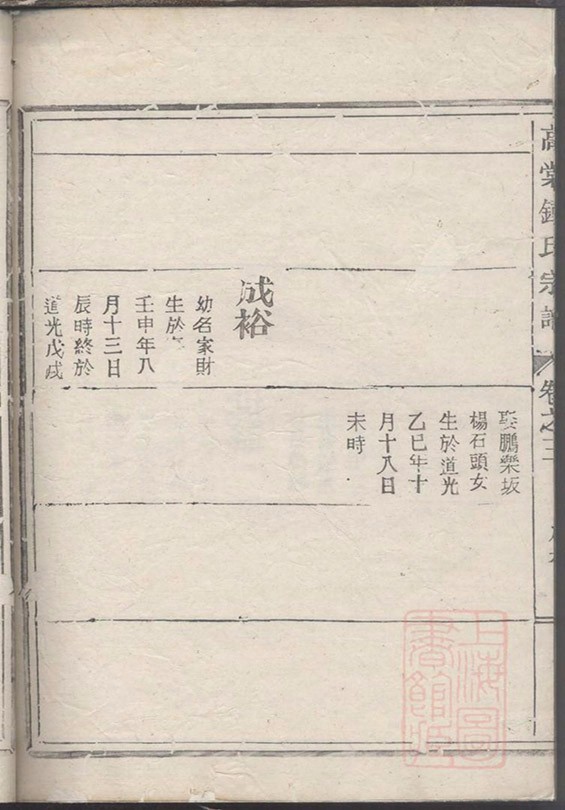 高棠鍾氏宗譜
卷之三
娶鵬樂坂
楊石頭女
生於道光
乙巳年十
月十八日
未時
成裕
幼名家財
生於
壬申年八
月十三日
辰時終於
道光戊戌
上海圖
書館藏